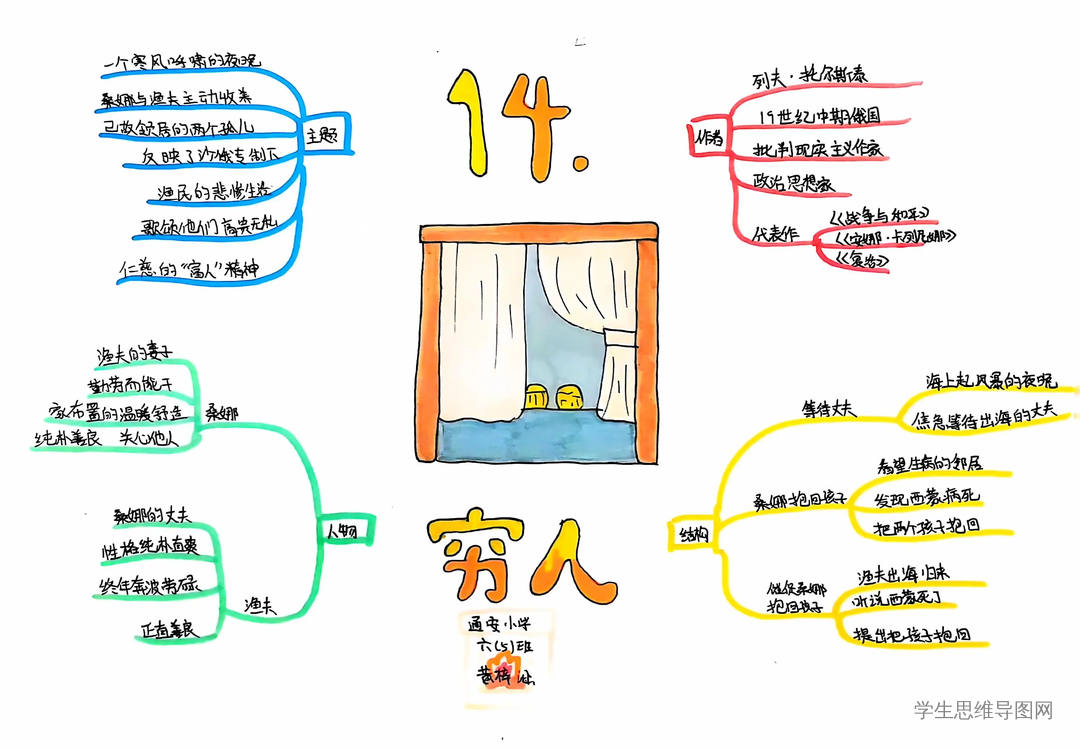 14.
穷人
通安小学
六(5)班
主题
一个寒风呼啸的夜晚
桑娜与渔夫主动收养
已故邻居的两个孤儿
反映了沙俄专制下
渔民的悲惨生活
歌颂他们高尚无私
仁慈的“富人”精神
作者
列夫·托尔斯泰
19世纪中期俄国
批判现实主义作家
政治思想家
代表作
《战争与和平》
《安娜·卡列尼娜》
《复活》
人物
桑娜
渔夫的妻子
勤劳而能干
家布置的温暖舒适
纯朴善良 关心他人
渔夫
桑娜的丈夫
性格纯朴直爽
终年奔波劳碌
正直善良
结构
等待丈夫
海上起风暴的夜晚
焦急等待出海的丈夫
桑娜抱回孩子
看望生病的邻居
发现西蒙病死
把两个孩子抱回
催促桑娜
抱回孩子
渔夫出海归来
听说西蒙死了
提出把孩子抱回
学生思维导图网